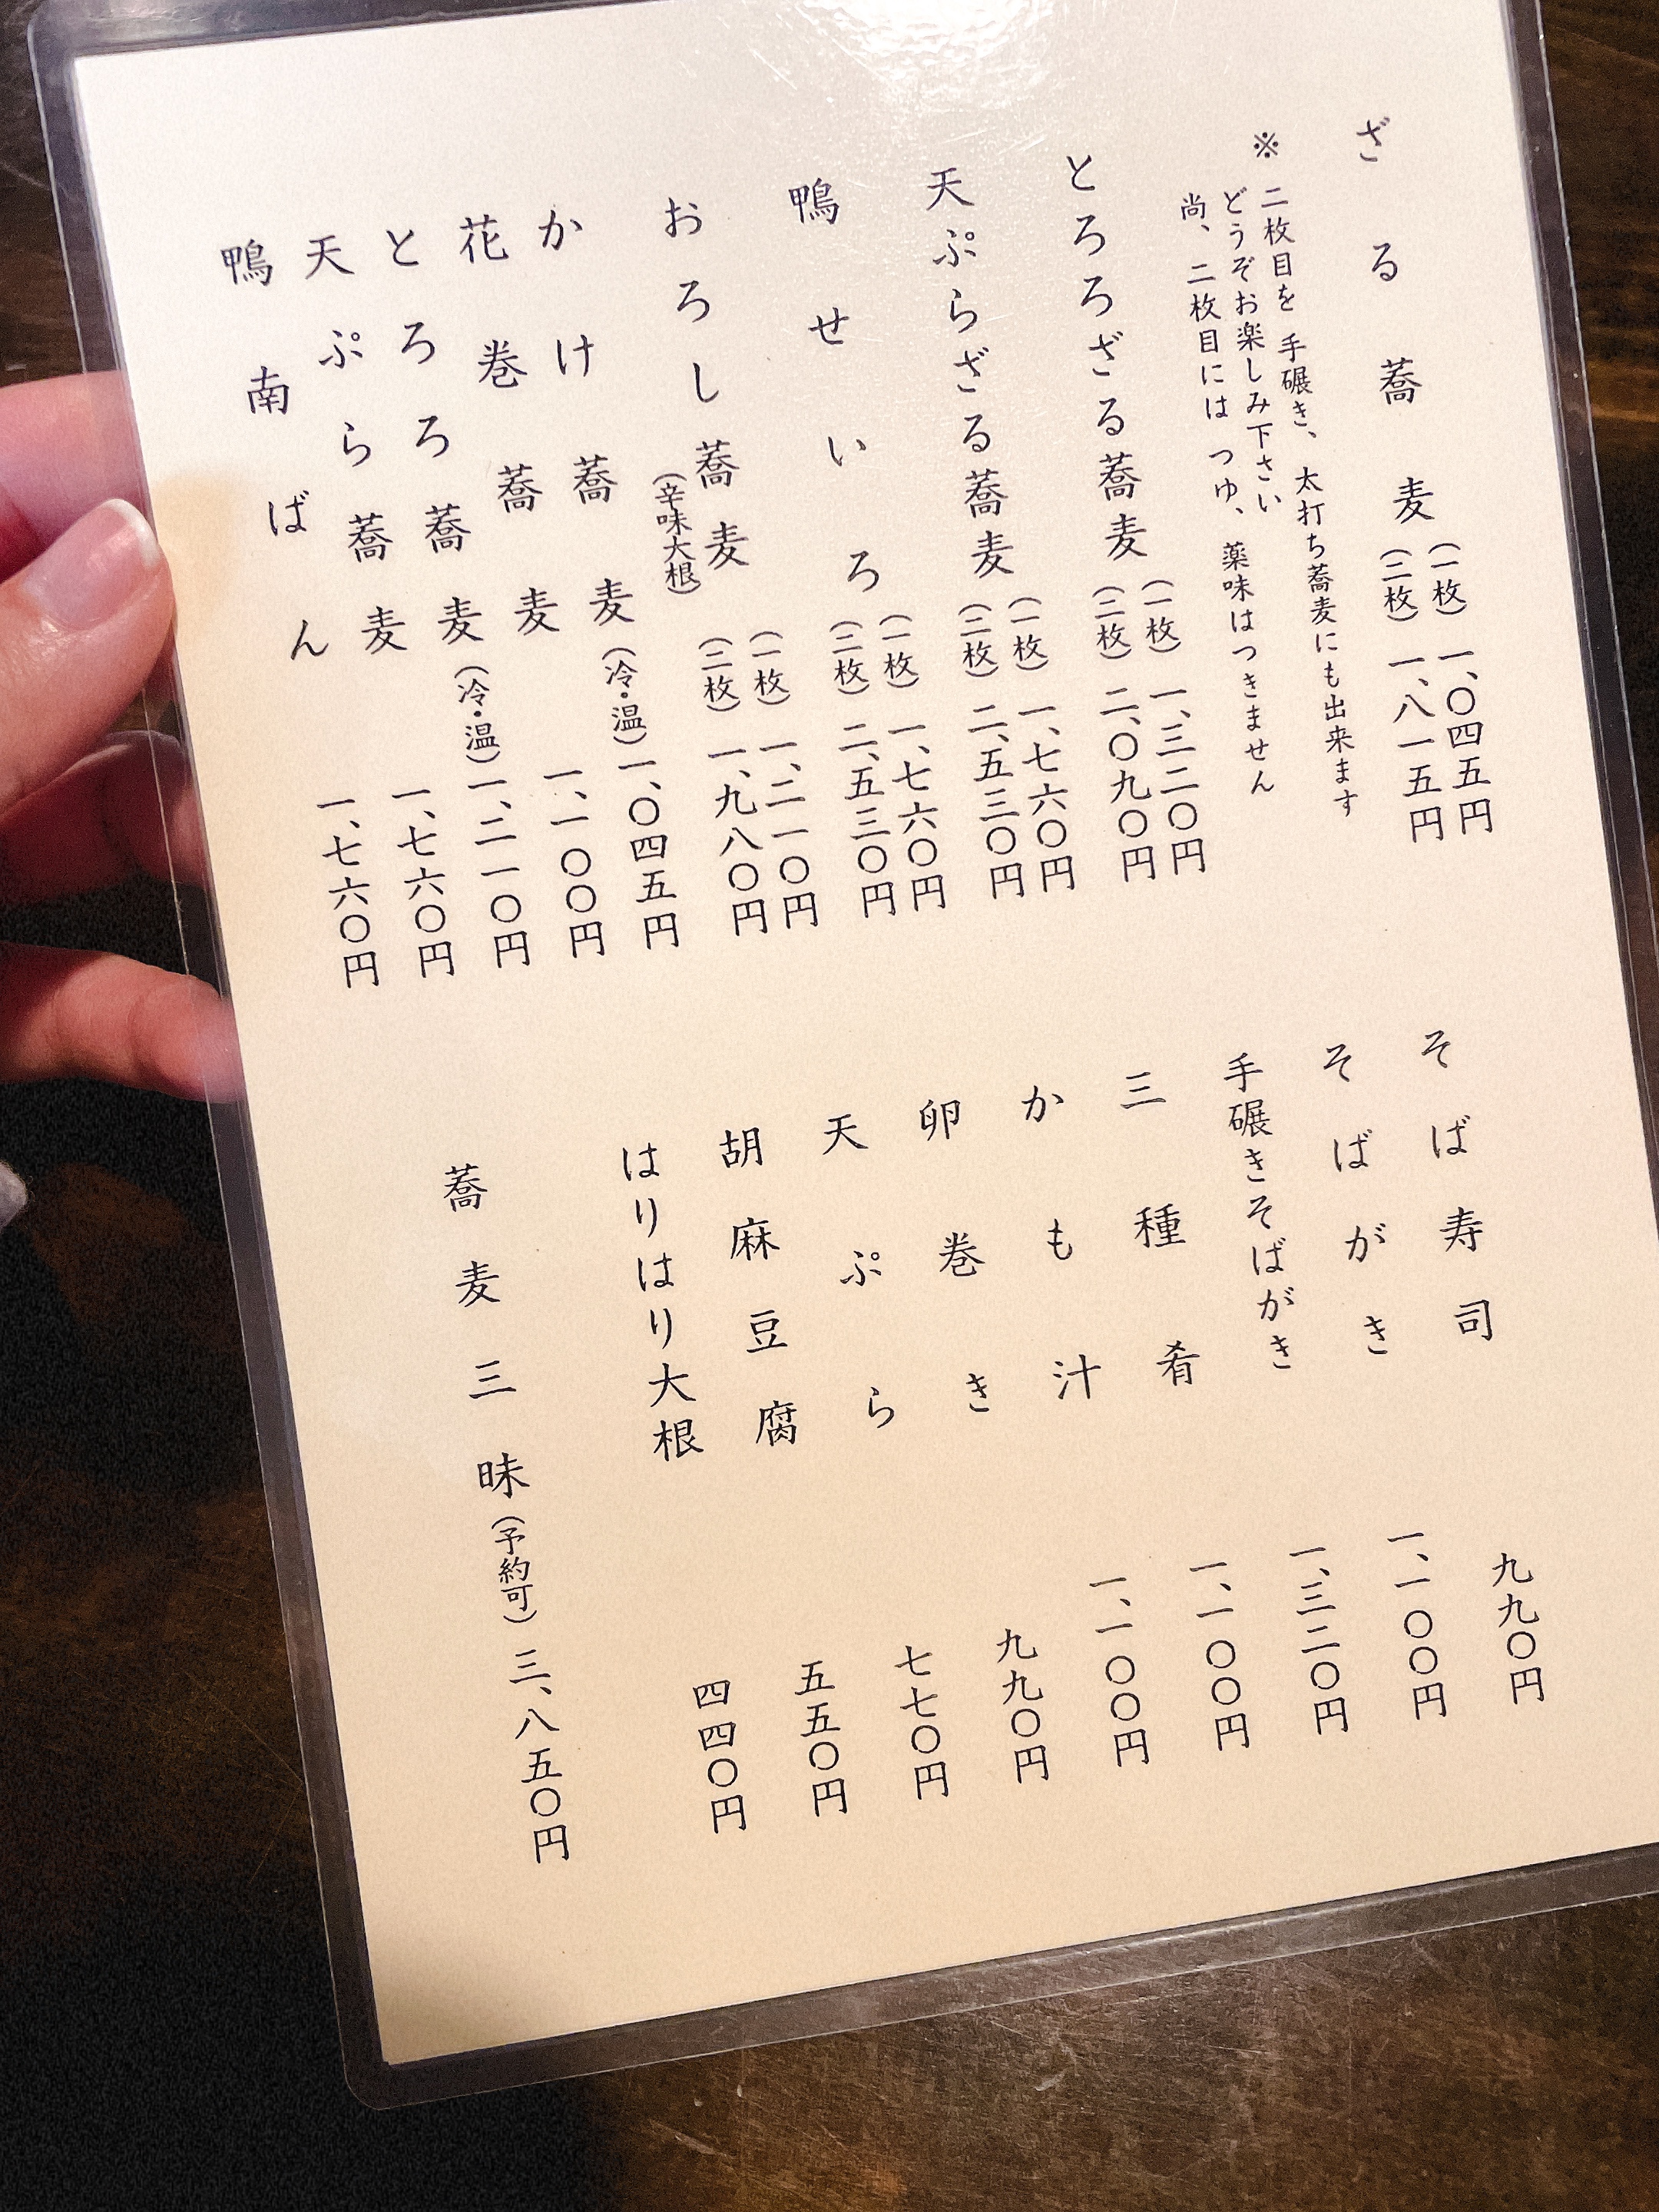 ざる蕎麦
(一枚) 一、〇四五円
(二枚) 一、八一五円
※二枚目を 手碾き、太打ち蕎麦にも出来ます
どうぞお楽しみ下さい
尚、二枚目には つゆ、薬味はつきません
とろろざる蕎麦
(一枚) 一、三二〇円
(二枚) 二、〇九〇円
天ぷらざる蕎麦
(一枚) 一、七六〇円
(二枚) 二、五三〇円
鴨せいろ
(一枚) 一、七六〇円
(二枚) 二、五三〇円
おろし蕎麦
(辛味大根)
(一枚) 一、二一〇円
(二枚) 一、九八〇円
かけ蕎麦(冷・温) 一、〇四五円
花巻蕎麦 一、一〇〇円
とろろ蕎麦(冷・温) 一、二一〇円
天ぷら蕎麦 一、七六〇円
鴨南ばん 一、七六〇円
そば寿司 九九〇円
そばがき 一、一〇〇円
手碾きそばがき 一、三二〇円
三種肴 一、一〇〇円
かも汁 一、一〇〇円
卵巻き 九九〇円
天ぷら 七七〇円
胡麻豆腐 五五〇円
はりはり大根 四四〇円
蕎麦三昧(予約可) 三、八五〇円